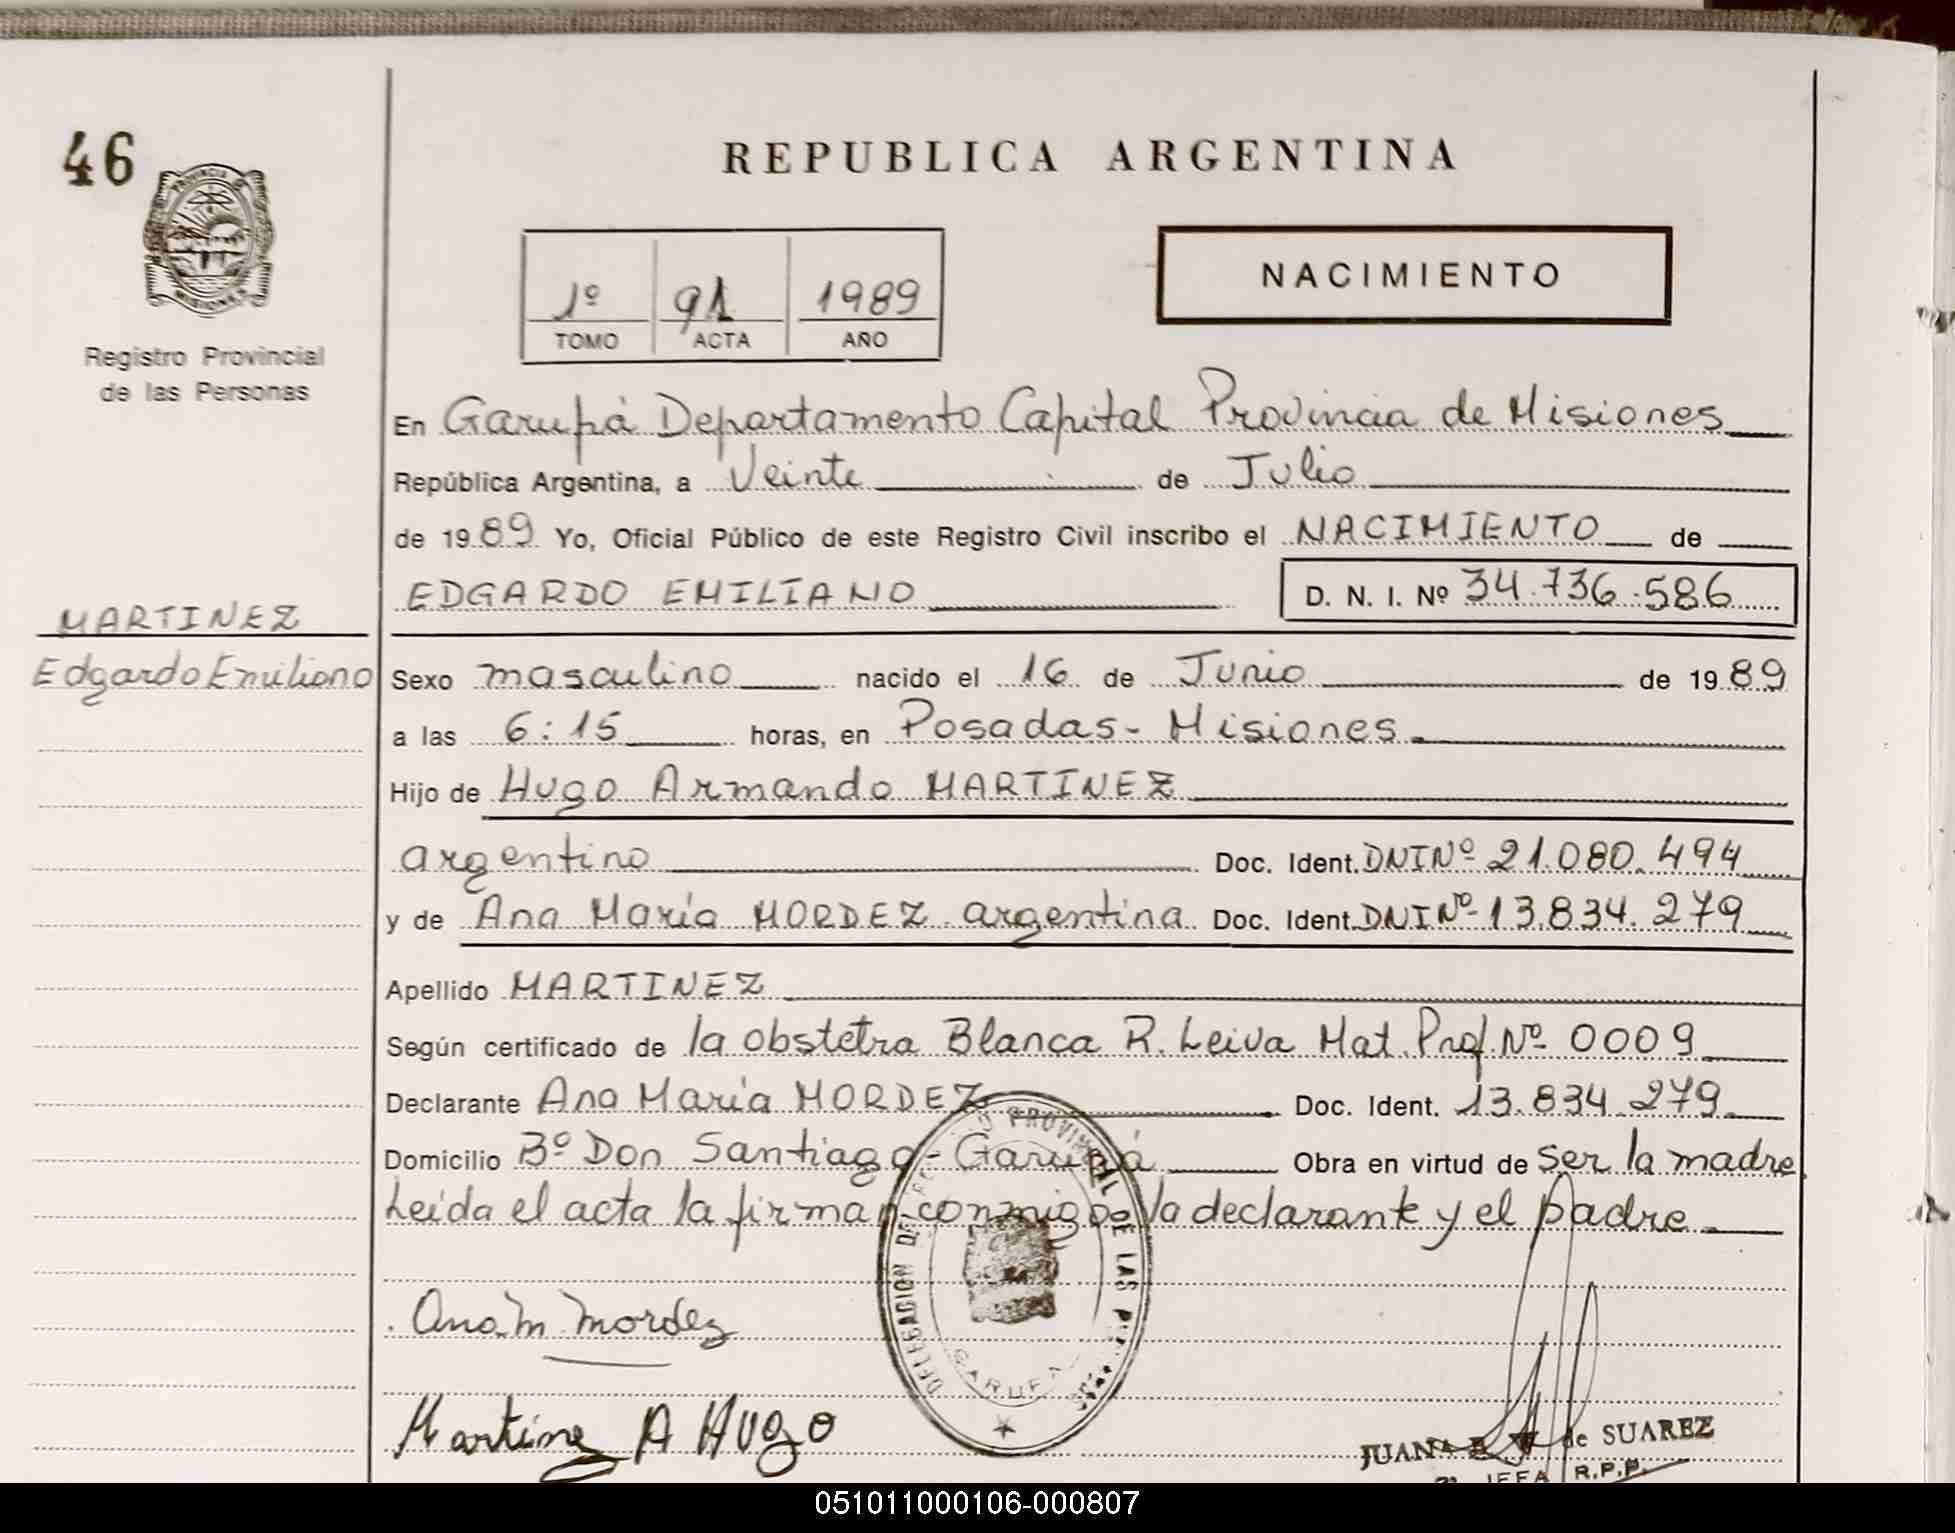 46
PROVINCIA DE
MISIONES
Registro Provincial
de las Personas
REPUBLICA ARGENTINA
1º 91 1989
TOMO ACTA AÑO
NACIMIENTO
En Garupá Departamento Capital Provincia de Misiones
República Argentina, a Veinte de Julio
de 1989 Yo, Oficial Público de este Registro Civil inscribo el NACIMIENTO de
EDGARDO EMILIANO D. N. I. Nº 34.736.586
MARTINEZ
Edgardo Emiliano
Sexo masculino nacido el 16 de Junio de 1989
a las 6:15 horas, en Posadas - Misiones
Hijo de Hugo Armando MARTINEZ
argentino Doc. Ident. DNI Nº 21.080.494
y de Ana María MORDEZ argentina Doc. Ident. DNI Nº 13.834.279
Apellido MARTINEZ
Según certificado de la obstetra Blanca R. Leiva Mat. Prof. Nº 0009
Declarante Ana María MORDEZ Doc. Ident. 13.834.279
Domicilio Bº Don Santiago - Garupá Obra en virtud de ser la madre
Leída el acta la firman conmigo la declarante y el padre
DELEGACION DEL PROVINCIAL DE LAS
GARUPA
Ana M. Mordez
Martinez A Hugo
JUANA de SUAREZ
JEFA R.P.P.
051011000106-000807